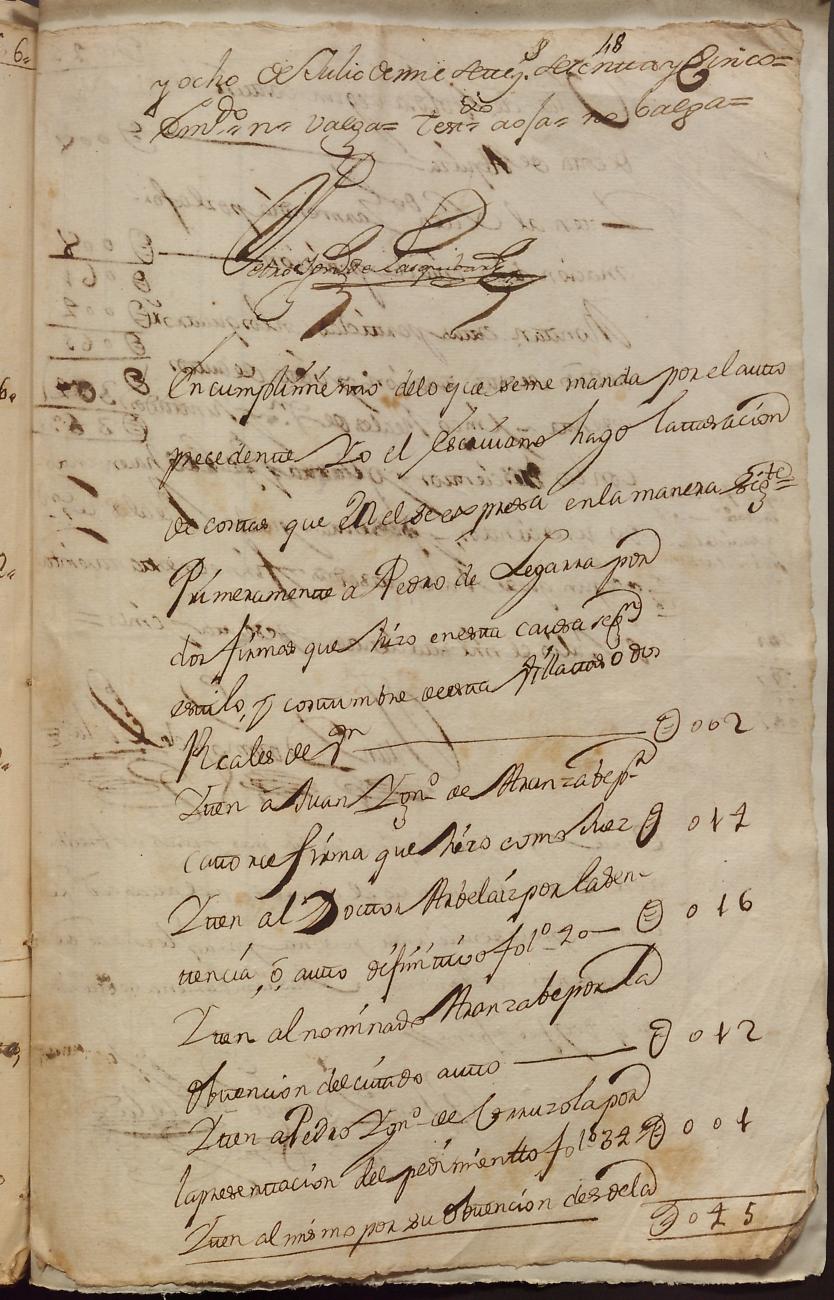 48
y ocho de Julio de mil setecs. setenta y Cinco=
Emdo= n= valga= Test= aosa= no balga=
Pedro Ignº de Lasquibar
En cumplimiento de lo que se me manda por el auto
precedente Yo el Escriuano hago la tasación
de costas que en el se expresa en la manera sigte=
Primeramente a Pedro de Legarra por
dos firmas que hizo en esta causa segn
estilo, y costumbre de esta Villa dos
Reales de Vn 002
Yten a Juan Ygnº de Aranzabe pr
catorce firma que hizo como Juez 014
Yten al Doctor Arbelaiz por la sen-
tencia, ó auto difinitiuo folº 40 016
Yten al nominado Aranzabe por la
obtencion del citado auto 012
Yten a Pedro Ygnº de Gorruzola por
la presentación del pedimentto folº 34 001
Yten al mismo por su obtencion desde la
045